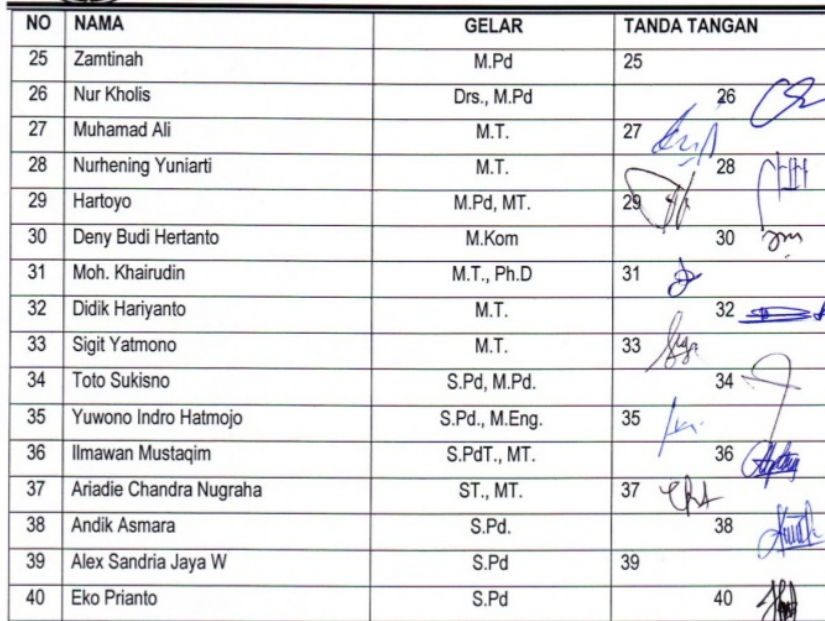 NO NAMA GELAR TANDA TANGAN
25 Zamtinah M.Pd 25
26 Nur Kholis Drs., M.Pd 26
27 Muhamad Ali M.T. 27
28 Nurhening Yuniarti M.T. 28
29 Hartoyo M.Pd, MT. 29
30 Deny Budi Hertanto M.Kom 30
31 Moh. Khairudin M.T., Ph.D 31
32 Didik Hariyanto M.T. 32
33 Sigit Yatmono M.T. 33
34 Toto Sukisno S.Pd, M.Pd. 34
35 Yuwono Indro Hatmojo S.Pd., M.Eng. 35
36 Ilmawan Mustaqim S.PdT., MT. 36
37 Ariadie Chandra Nugraha ST., MT. 37
38 Andik Asmara S.Pd. 38
39 Alex Sandria Jaya W S.Pd 39
40 Eko Prianto S.Pd 40